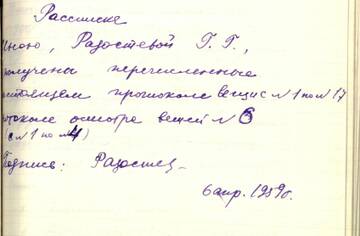 Расписка
Мною, Радостевой Г. Г.,
получены перечисленные
настоящем протоколе вещи с №1 по №17
протоколе осмотре вещей № 6
(с №1 по №4)
Подпись: Радостев
6 апр. 1959 г.